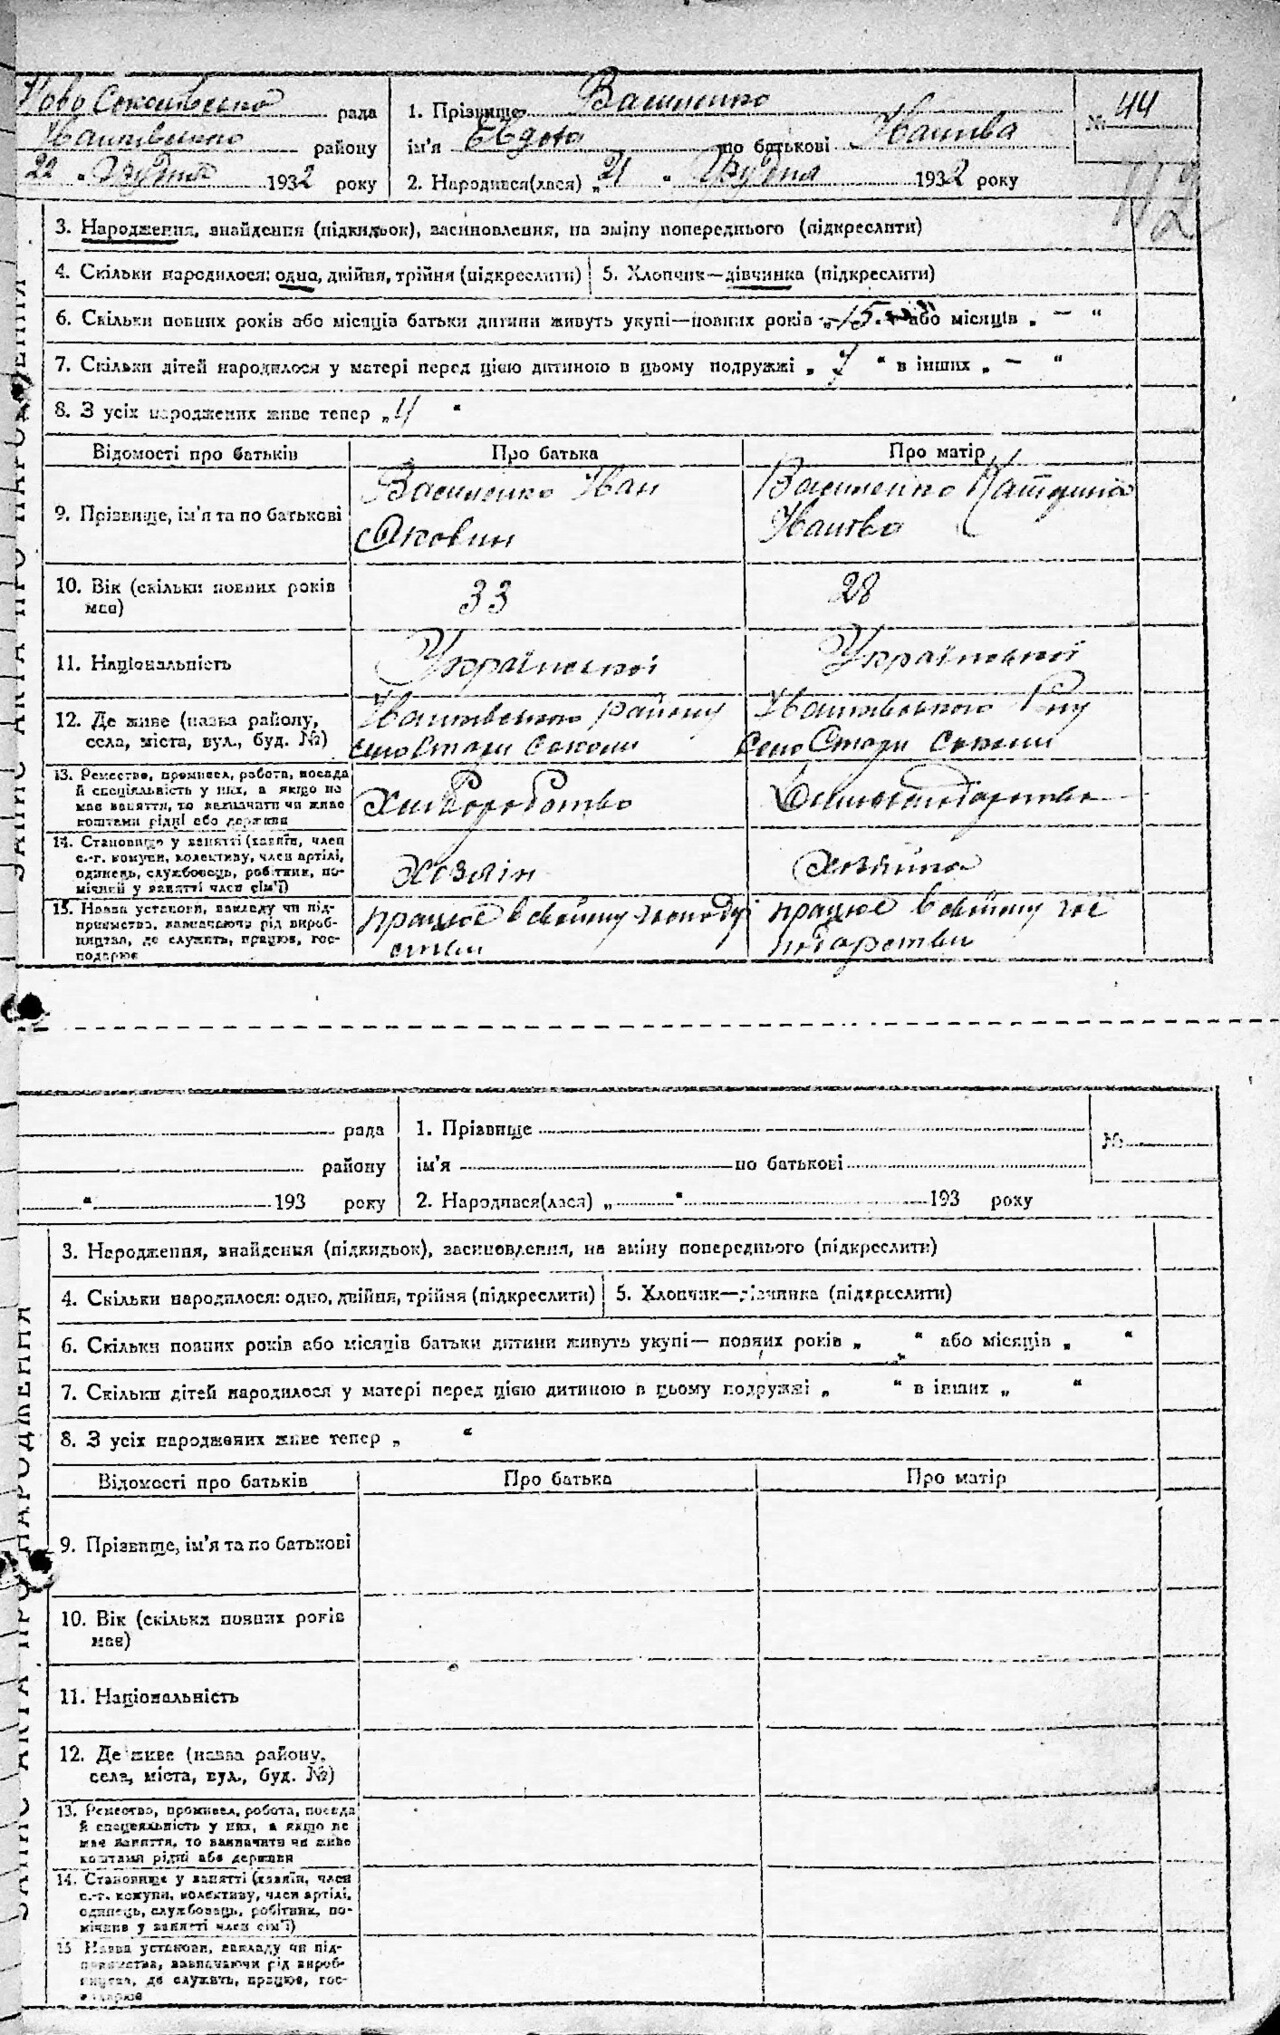 Ново Соколівська рада
Іванківського району
22 " Грудня 1932 року
1. Прізвище Василенко
ім'я Євдокія по батькові Іванівна
2. Народився(лася) „21 " Грудня 1932 року
№ 44
112
ЗАПИС АКТА ПРО НАРОДЖЕННЯ
3. Народження, знайдення (підкидьок), засиновлення, на зміну попереднього (підкреслити)
4. Скільки народилося: одно, двійня, трійня (підкреслити) 5. Хлопчик—дівчинка (підкреслити)
6. Скільки повних років або місяців батьки дитини живуть укупі—повних років „15 " або місяців „ — "
7. Скільки дітей народилося у матері перед цією дитиною в цьому подружжі „ 7 " в інших „ — "
8. З усіх народжених живе тепер „4 "
Відомості про батьків Про батька Про матір
9. Прізвище, ім'я та по батькові
Василенко Іван
Якович
Василенко Катерина
Іванівна
10. Вік (скільки повних років
має)
33
28
11. Національність
Української
Української
12. Де живе (назва району,
села, міста, вул., буд. №)
Іванківського району
село Стари Соколи
Іванківського Р-ну
Село Стари Соколи
13. Ремество, промисел, робота, посада
й спеціяльність у них, а якщо не
має заняття, то зазначати чи живе
коштами рідні або держави
Хліборобство
14. Становище у занятті (хазяїн, член
с.-г. комуни, колективу, член артілі,
одинець, службовець, робітник, по-
мічний у занятті член сім'ї)
Хазяїн
Хазяйка
15. Назва установи, закладу чи під-
приємства, зазначаючи рід вироб-
ництва, де служить, працює, гос-
подарює
працює в своїму господар
стви
працює в своїму гос
подарстви
рада
району
" 193 року
1. Прізвище
ім'я по батькові
2. Народився(лася) „ " 193 року
№
ЗАПИС АКТА ПРО НАРОДЖЕННЯ
3. Народження, знайдення (підкидьок), засиновлення, на зміну попереднього (підкреслити)
4. Скільки народилося: одно, двійня, трійня (підкреслити) 5. Хлопчик—дівчинка (підкреслити)
6. Скільки повних років або місяців батьки дитини живуть укупі— повних років „ " або місяців „ "
7. Скільки дітей народилося у матері перед цією дитиною в цьому подружжі „ " в інших „ "
8. З усіх народжених живе тепер „ "
Відомості про батьків Про батька Про матір
9. Прізвище, ім'я та по батькові
10. Вік (скільки повних років
має)
11. Національність
12. Де живе (назва району,
села, міста, вул., буд. №)
13. Ремество, промисел, робота, посада
й спеціяльність у них, а якщо не
має заняття, то зазначити чи живе
коштами рідні або держави
14. Становище у занятті (хазяїн, член
с.-г. комуни, колективу, член артілі,
одинець, службовець, робітник, по-
мічний у занятті член сім'ї)
15 Назва установи, закладу чи під-
приємства, зазначаючи рід вироб-
ництва, де служить, працює, гос-
подарює